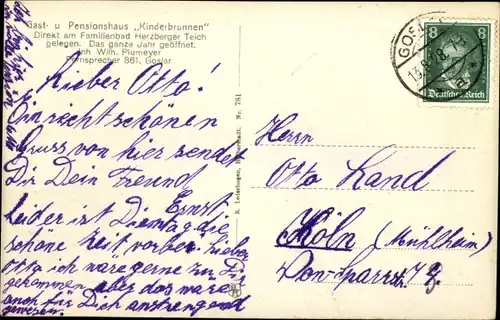 Gast- u Pensionshaus „Kinderbrunnen"
Direkt am Familienbad Herzberger Teich
gelegen. Das ganze Jahr geöffnet.
Inh Wilh. Plumeyer
Fernsprecher 861, Goslar
Lieber Otto!
Ein recht schönen
Gruss von hier sendet
Dir Dein Freund
Ernst
Leider ist Dienstag die
schöne Zeit vorbei. Lieber
Otto ich wäre gerne zu Dir
gekommen aber das wäre
auch für Dich anstrengend
gewesen.
R. Lederbogen, Halberstadt. Nr. 781
GOSLAR
8 8
Deutsches Reich
Herrn
Otto Land
Köln (Mühlheim)